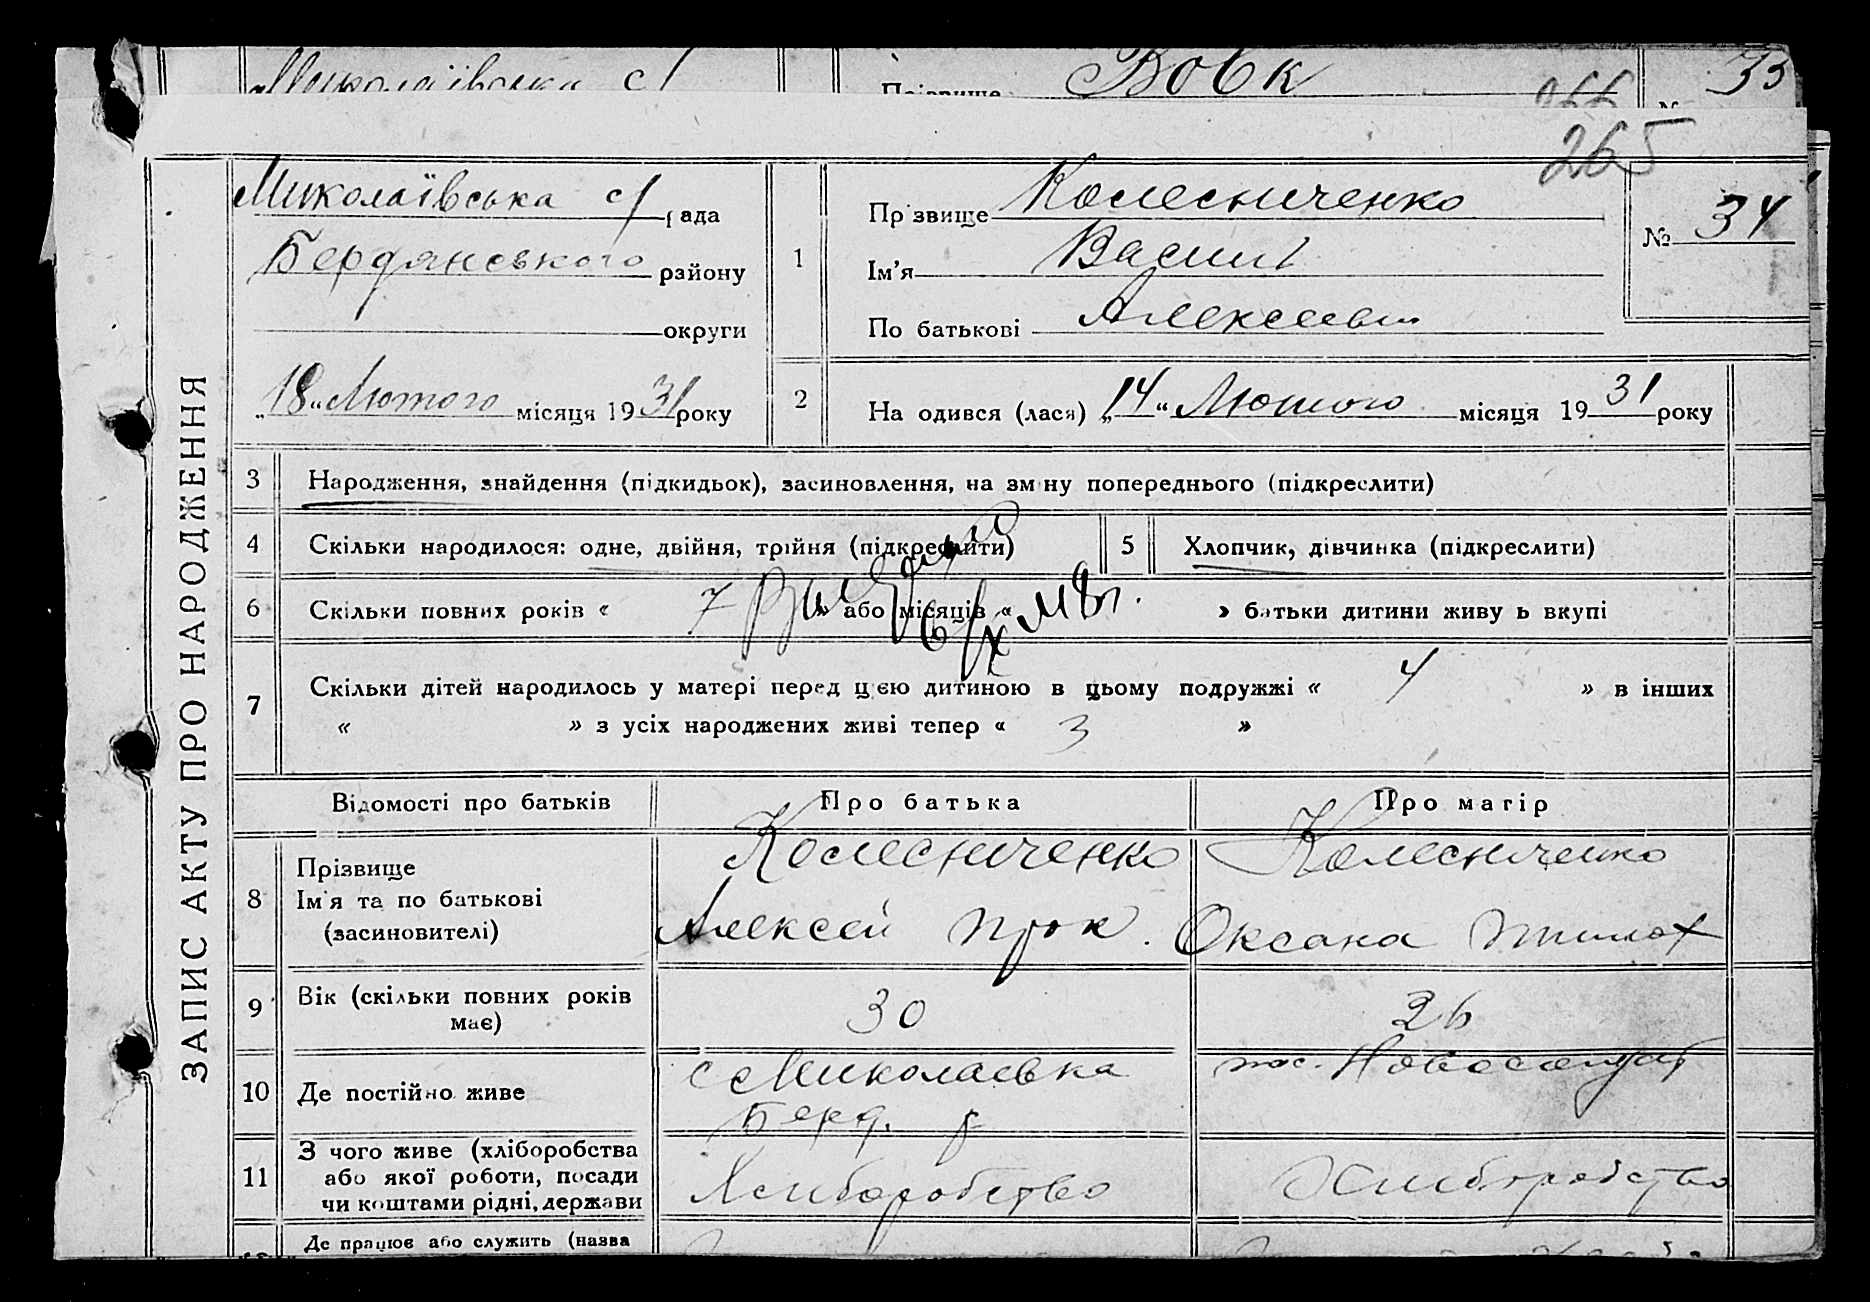 Миколаївська с/
Прізвище Вовк
33
266
265
ЗАПИС АКТУ ПРО НАРОДЖЕННЯ
Миколаївська с/ рада
Бердянського району
округи
„18“ Лютого місяця 1931 року
1
Прізвище Колесниченко
Ім’я Васил
По батькові Алексеевич
№ 34
2
На одився (лася) „14“ Лютого місяця 1931 року
3 Народження, знайдення (підкидьок), засиновлення, на зміну попереднього (підкреслити)
4 Скільки народилося: одне, двійня, трійня (підкреслити)
5 Хлопчик, дівчинка (підкреслити)
6 Скільки повних років « 7 » або місяців « » батьки дитини живуть вкупі
7 Скільки дітей народилось у матері перед цією дитиною в цьому подружжі « 4 » в інших
« » з усіх народжених живі тепер « 3 »
Відомості про батьків
Про батька
Про матір
8 Прізвище
Ім’я та по батькові
(засиновителі)
Колесниченко
Алексей Прок.
Колесниченко
Оксана
9 Вік (скільки повних років має)
30
26
10 Де постійно живе
с Миколаевка
Берд. р
пос.
11 З чого живе (хліборобства
або якої роботи, посади
чи коштами рідні, держави
Хлиборобство
Хлиборобство
Де працює або служить (назва